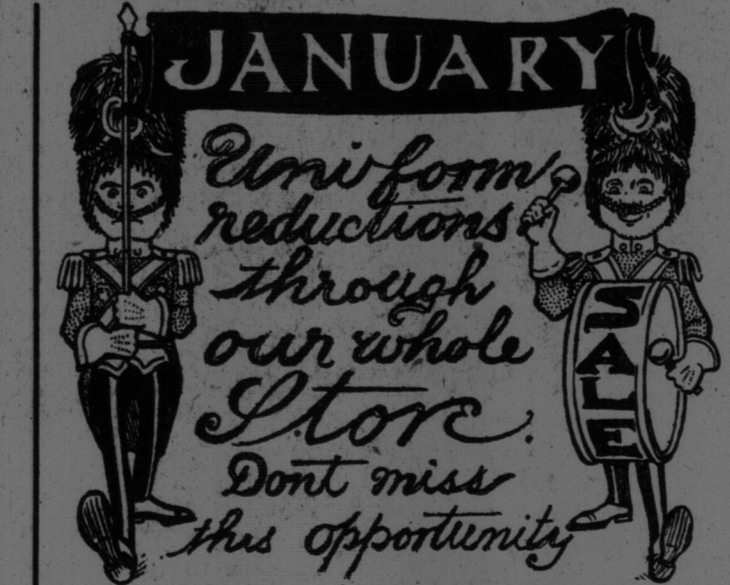 JANUARY
Uniform
reductions
through
our whole
Store.
Dont miss
this opportunity
SALE